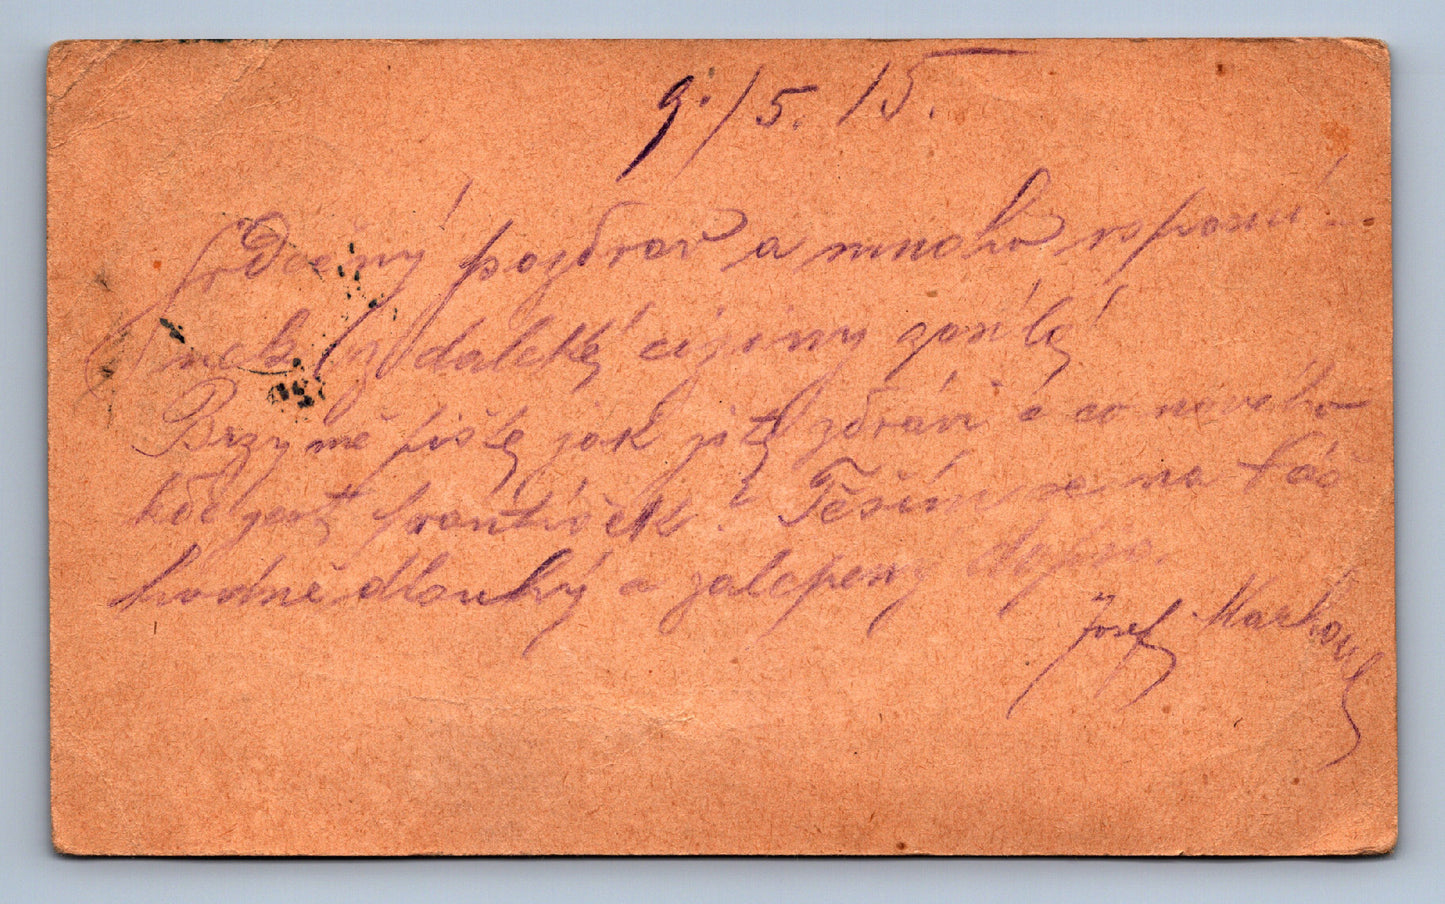 9./5. 15.
Srdečný pozdrav a mnoho vzpomí-
nek z daleké ciziny zasílá
Brzy mě pište jak jste zdrávi a co nového
kde jest františek. Těším se na Váš
hodně dlouhý a zalepený dopis.
Josef